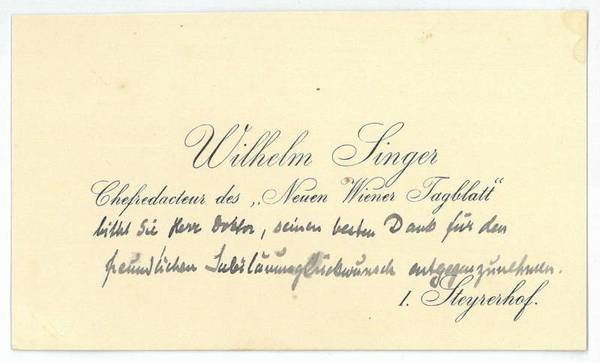 Wilhelm Singer
Chefredacteur des „Neuen Wiener Tagblatt“
bittet Sie Herr Doktor, seinen besten Dank für den
freundlichen Jubiläumsglückwunsch entgegenzunehmen.
1. Steyrerhof.